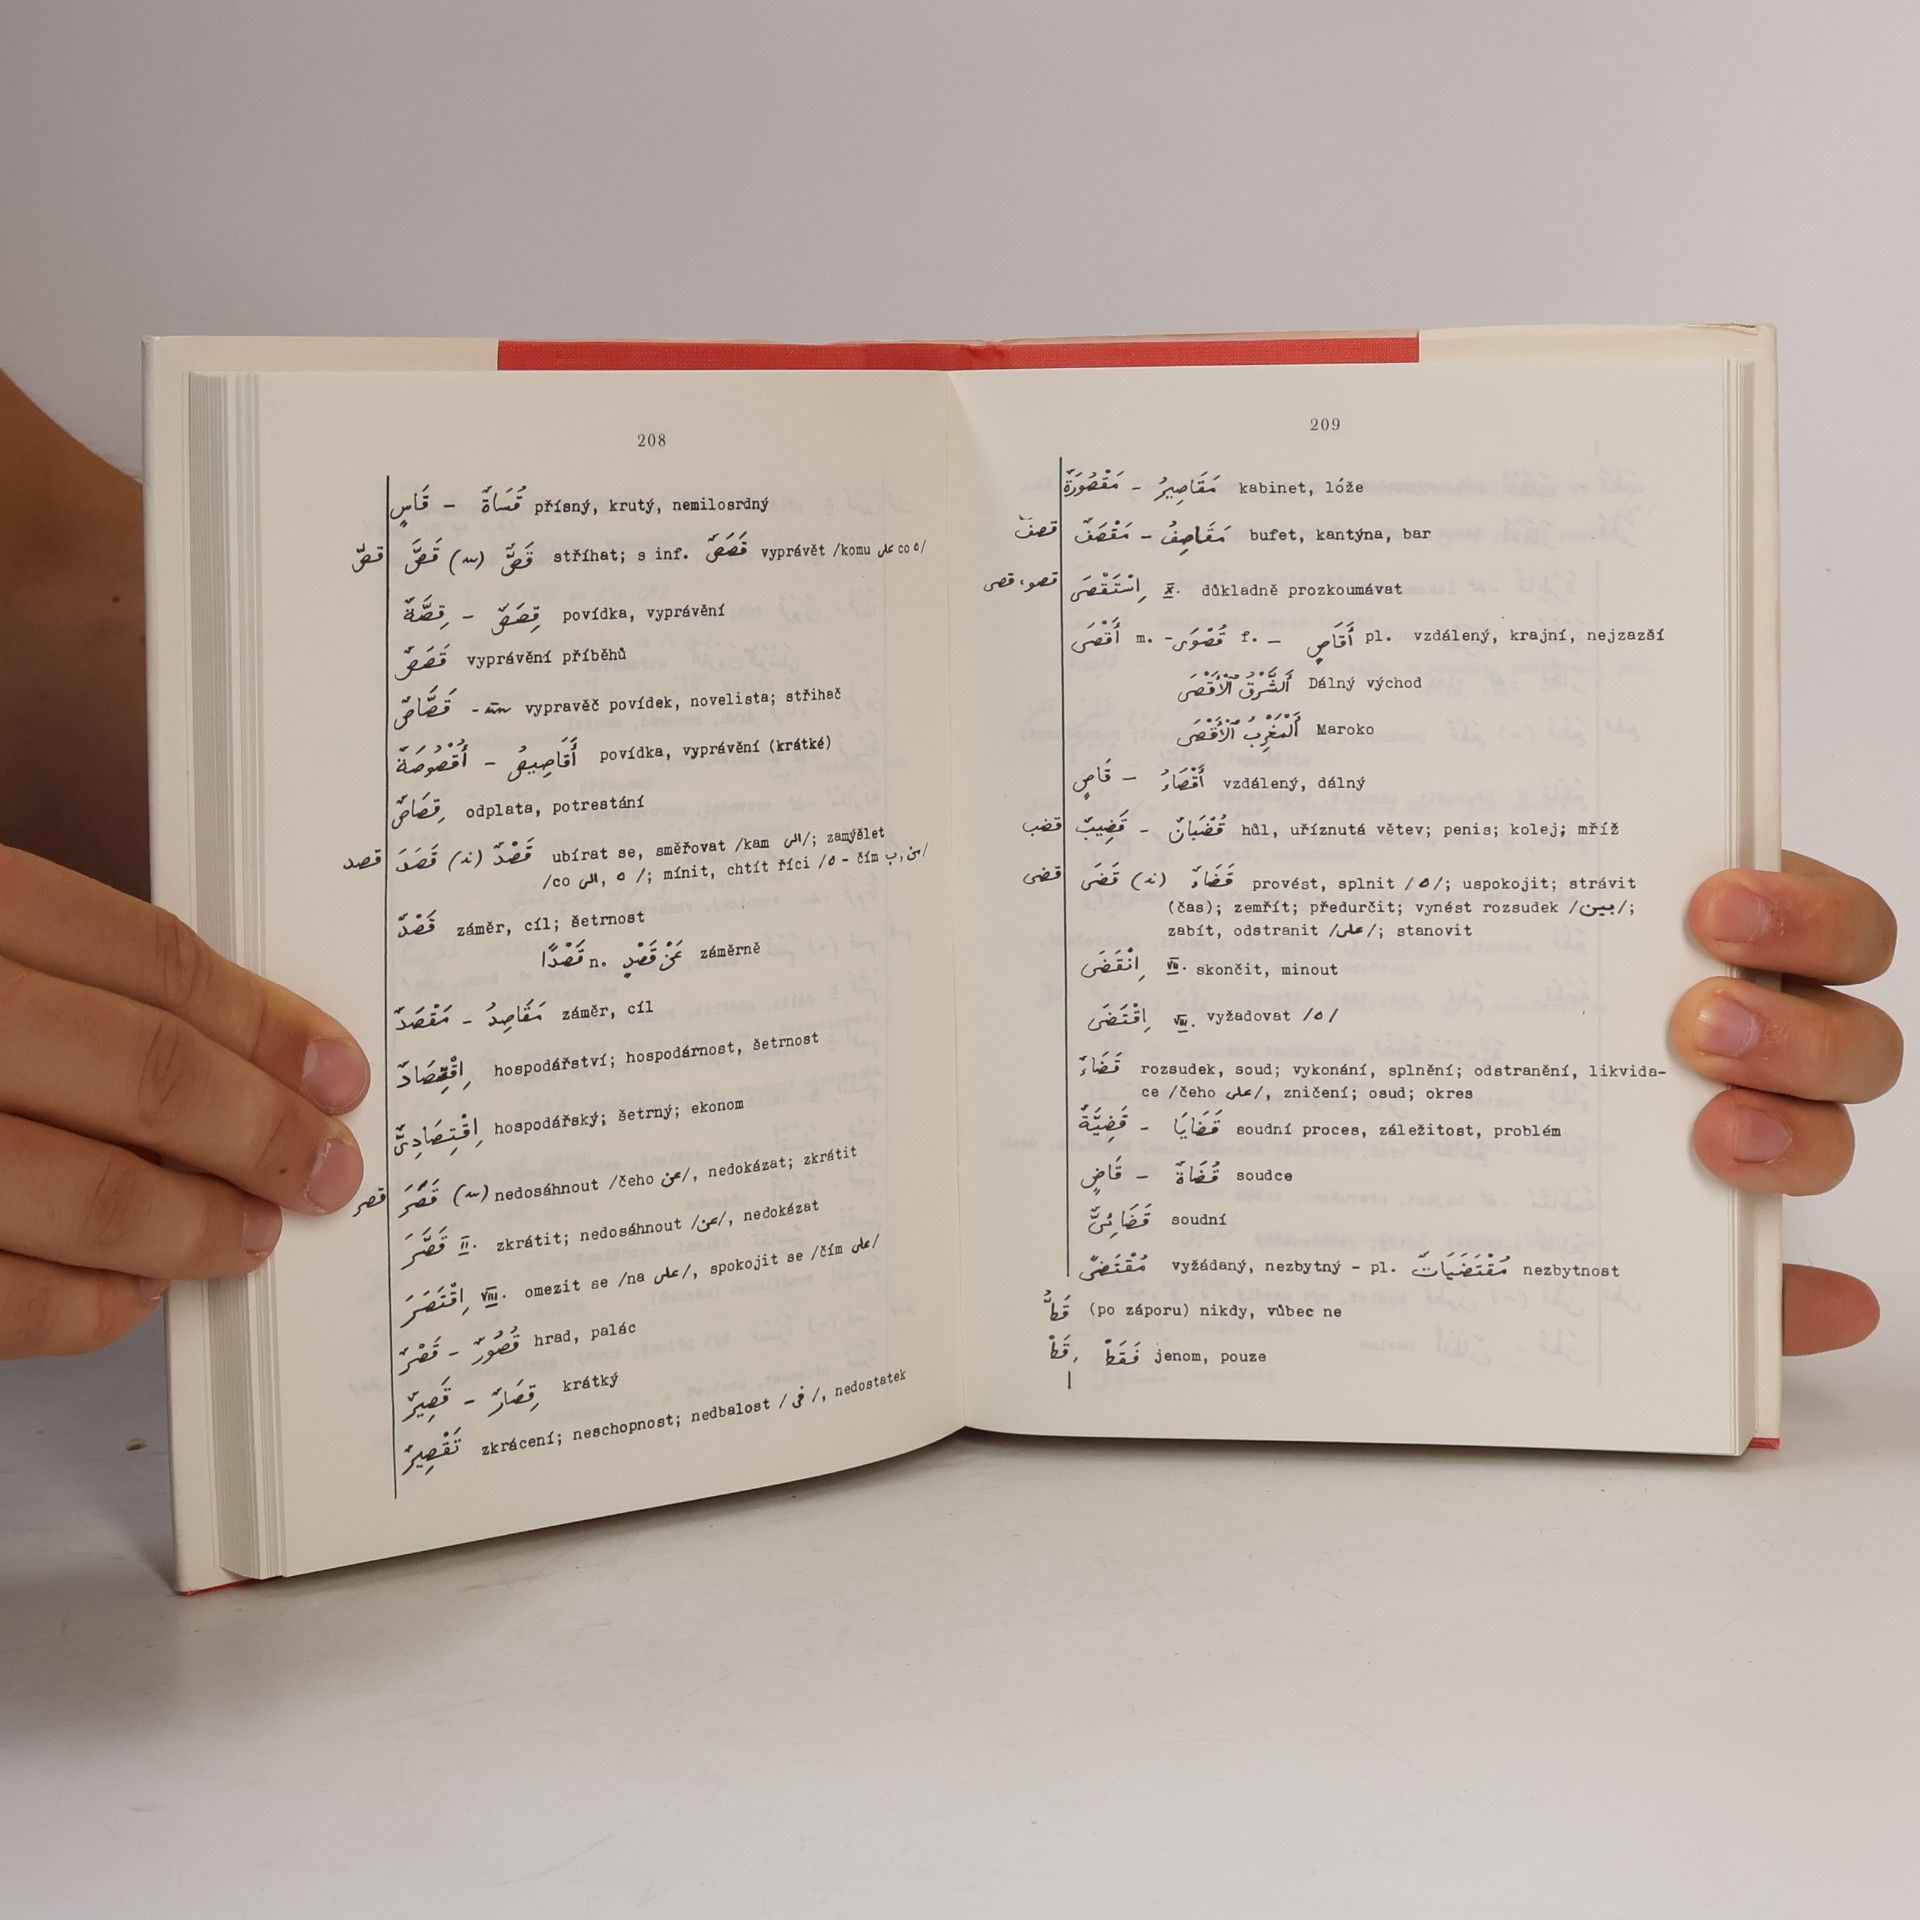 208
قَاسٍ – قُسَاةٌ přísný, krutý, nemilosrdný
قصّ قَصَّ (ـُـ) قَصٌّ stříhat; s inf. قَصَصٌ vyprávět /komu على co ه/
قِصَّةٌ – قِصَصٌ povídka, vyprávění
قَصَصٌ vyprávění příběhů
قَصَّاصٌ - ون vypravěč povídek, novelista; střihač
أُقْصُوصَةٌ – أَقَاصِيصُ povídka, vyprávění (krátké)
قِصَاصٌ odplata, potrestání
قصد قَصَدَ (ـِـ) قَصْدٌ ubírat se, směřovat /kam الى/; zamýšlet
/co ه, الى/; mínit, chtít říci /ه – čím ب, من/
قَصْدٌ záměr, cíl; šetrnost
قَصْدًا n. عَنْ قَصْدٍ záměrně
مَقْصَدٌ – مَقَاصِدُ záměr, cíl
اِقْتِصَادٌ hospodářství; hospodárnost, šetrnost
اِقْتِصَادِيٌّ hospodářský; šetrný; ekonom
قصر قَصَرَ (ـُـ) nedosáhnout /čeho عن/, nedokázat; zkrátit
قَصَّرَ II. zkrátit; nedosáhnout /عن/, nedokázat
اِقْتَصَرَ VIII. omezit se /na على/, spokojit se /čím على/
قَصْرٌ – قُصُورٌ hrad, palác
قَصِيرٌ – قِصَارٌ krátký
تَقْصِيرٌ zkrácení; neschopnost; nedbalost /فى/, nedostatek
209
مَقْصُورَةٌ – مَقَاصِيرُ kabinet, lóže
قصف مَقْصَفٌ – مَقَاصِفُ bufet, kantýna, bar
قصو، قصى اِسْتَقْصَى X. důkladně prozkoumávat
أَقْصَى m. – قُصْوَى f. – أَقَاصٍ pl. vzdálený, krajní, nejzazší
أَلشَّرْقُ ٱلْأَقْصَى Dálný východ
أَلْمَغْرِبُ ٱلْأَقْصَى Maroko
قَاصٍ – أَقْصَاءُ vzdálený, dálný
قضب قَضِيبٌ – قُضْبَانٌ hůl, uříznutá větev; penis; kolej; mříž
قضى قَضَى (ـِـ) قَضَاءٌ provést, splnit /ه/; uspokojit; strávit
(čas); zemřít; předurčit; vynést rozsudek /بين/;
zabít, odstranit /على/; stanovit
اِنْقَضَى VII. skončit, minout
اِقْتَضَى VIII. vyžadovat /ه/
قَضَاءٌ rozsudek, soud; vykonání, splnění; odstranění, likvida-
ce /čeho على/, zničení; osud; okres
قَضِيَّةٌ – قَضَايَا soudní proces, záležitost, problém
قَاضٍ – قُضَاةٌ soudce
قَضَائِيٌّ soudní
مُقْتَضًى vyžádaný, nezbytný – pl. مُقْتَضَيَاتٌ nezbytnost
قَطُّ (po záporu) nikdy, vůbec ne
قَطْ، فَقَطْ jenom, pouze